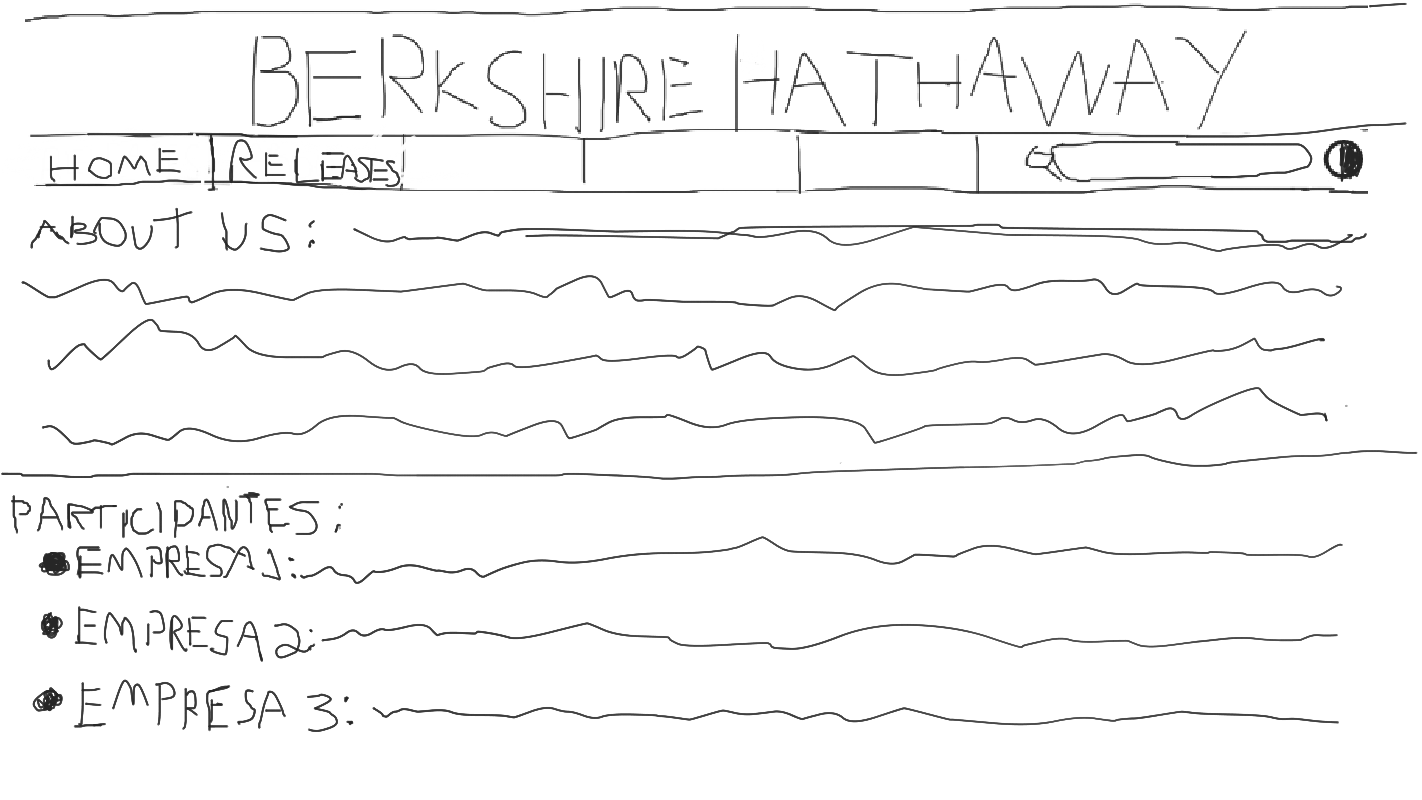 BERKSHIRE HATHAWAY
HOME RELEASES
ABOUT US:
PARTICIPANTES:
EMPRESA 1:
EMPRESA 2:
EMPRESA 3: